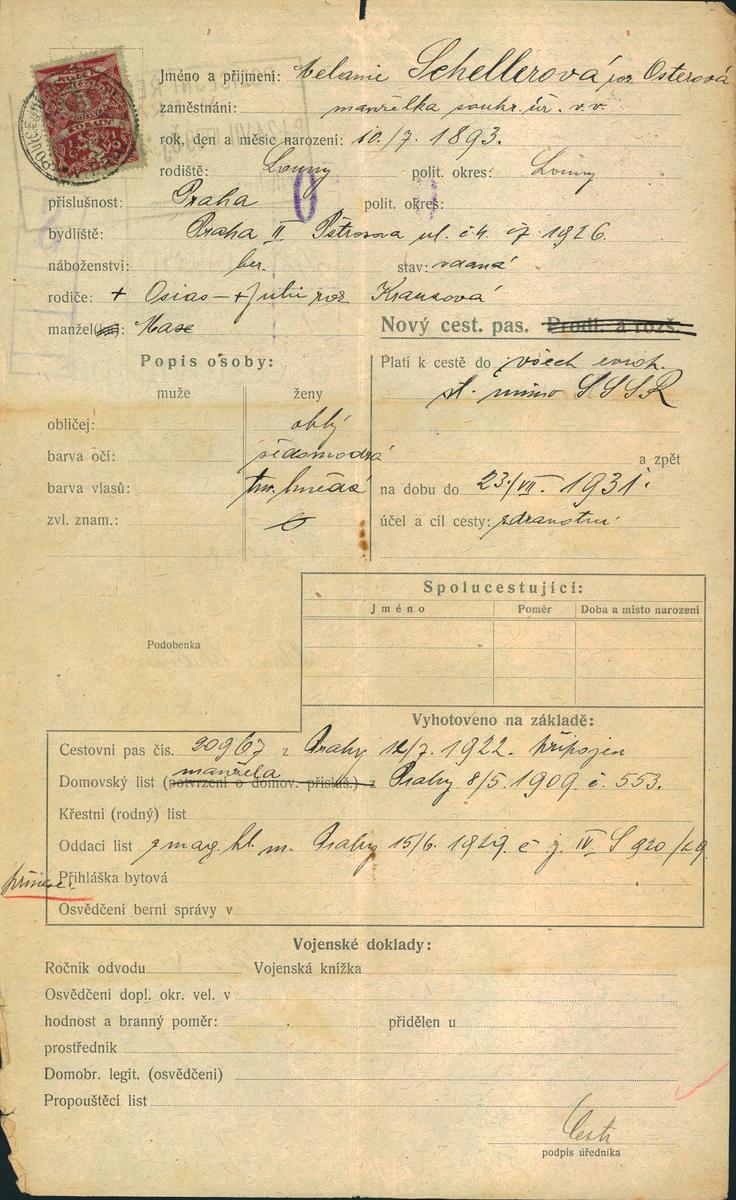 Jméno a přijmení: Melanie Schellerová roz. Osterová
zaměstnání: manželka soukr. úř. v. v.
rok, den a měsíc narození: 10./7. 1893.
rodiště: Louny polit. okres: Louny
příslušnost: Praha polit. okres:
bydliště: Praha II Pštrosova ul. č. 4. čp. 1926.
náboženství: bez. stav: vdaná
rodiče: + Osias – + Julie roz Krausová
manžel(ka): Max
Nový cest. pas. Prodl. a rozš.
Popis osoby:
muže ženy
obličej: oblý
barva očí: šedomodrá
barva vlasů: tm. hnědá
zvl. znam.:
Platí k cestě do všech evrop.
st. mimo SSSR
a zpět
na dobu do 23./VII. 1931.
účel a cíl cesty: zdravotní
Spolucestující:
Jméno Poměr Doba a místo narození
Podobenka
Vyhotoveno na základě:
Cestovní pas čís. 20967 z Prahy 12/7. 1922. připojen
manžela
Domovský list (potvrzení o domov. přísluš.) z Prahy 8/5. 1909. č. 553.
Křestní (rodný) list
Oddací list z mag. hl. m. Prahy 15/6. 1929. č j. IV. S 920/29.
Přihláška bytová
Osvědčení berní správy v
Vojenské doklady:
Ročník odvodu Vojenská knížka
Osvědčení dopl. okr. vel. v
hodnost a branný poměr: přidělen u
prostředník
Domobr. legit. (osvědčení)
Propouštěcí list
podpis úředníka